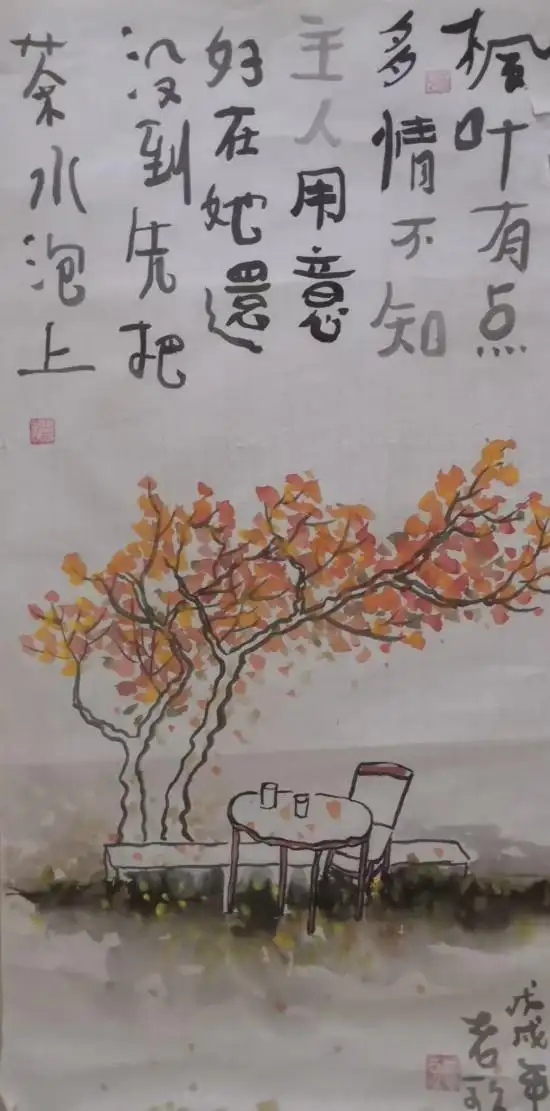 枫叶有点
多情不知
主人用意
好在她還
没到先把
茶水泡上
戊戌年